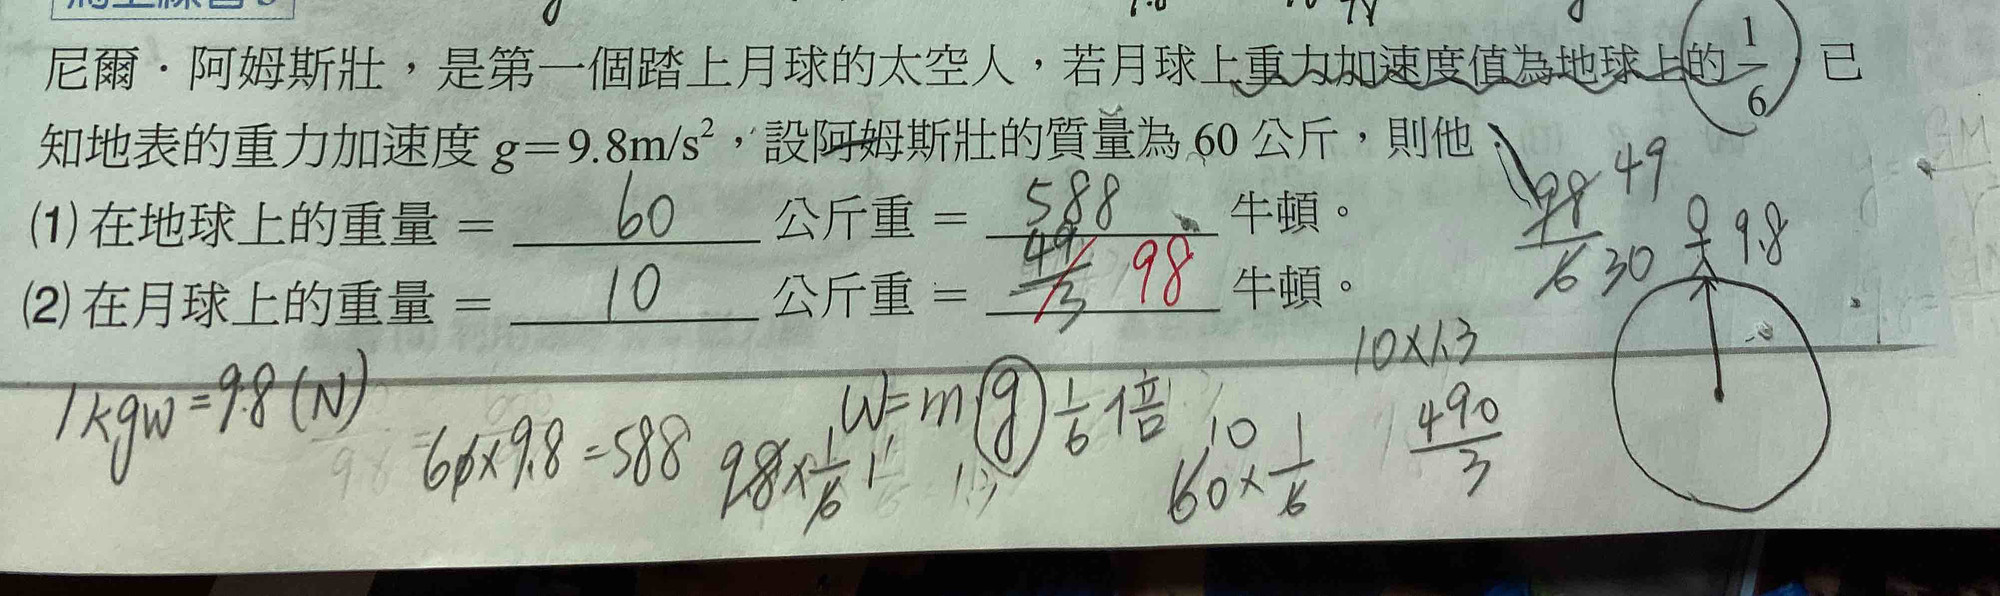 尼爾·阿姆斯壯，是第一個踏上月球的太空人，若月球上重力加速度值為地球上的 1/6，已
知地表的重力加速度 g=9.8m/s²，設阿姆斯壯的質量為 60 公斤，則他：
(1) 在地球上的重量 = 60 公斤重 = 588 牛頓。
(2) 在月球上的重量 = 10 公斤重 = 49/3 98 牛頓。
98/6 49 30
9.8
10×1.3
1kgw=9.8(N)
60×9.8=588
9.8×1/6
W=mg 1/6倍
10
60×1/6
490/3